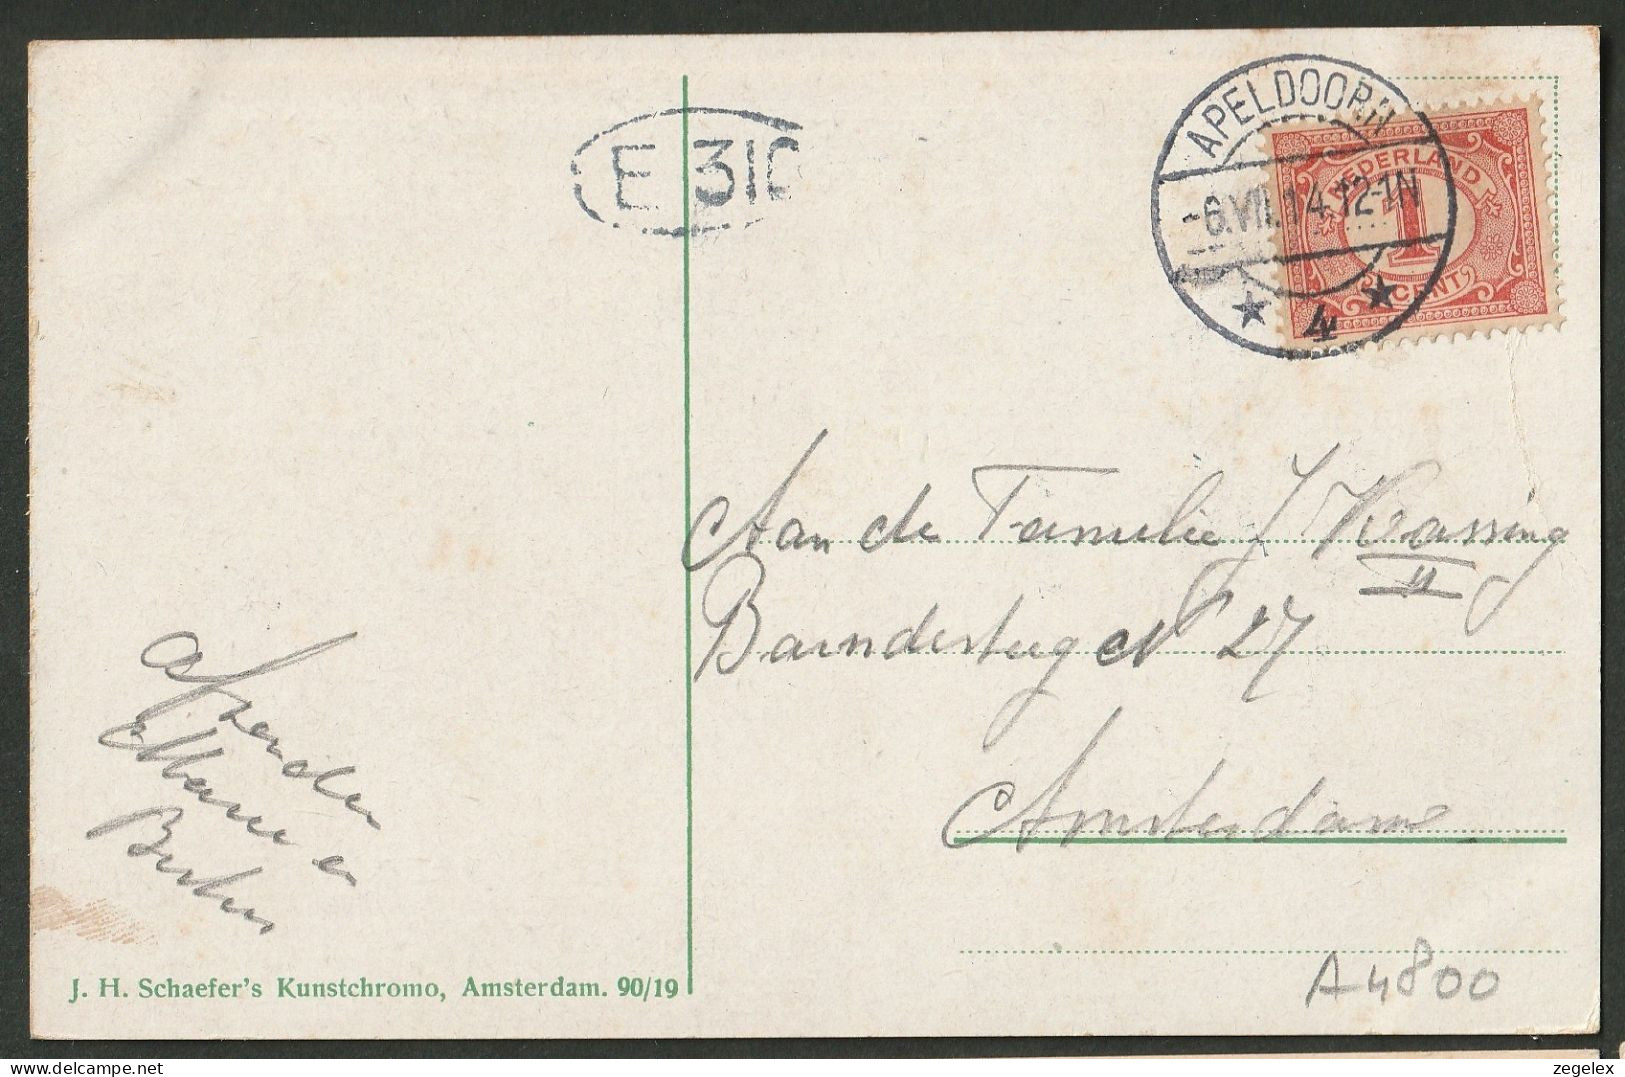 E 310
APELDOORN
-6.VII.14.12-1N
4
NEDERLAND
1
CENT
Aan de Familie J Krassing
II
Barndesteeg N° 27
Amsterdam
Afzender
Marie en
J. H. Schaefer's Kunstchromo, Amsterdam. 90/19
A4800
zegelex